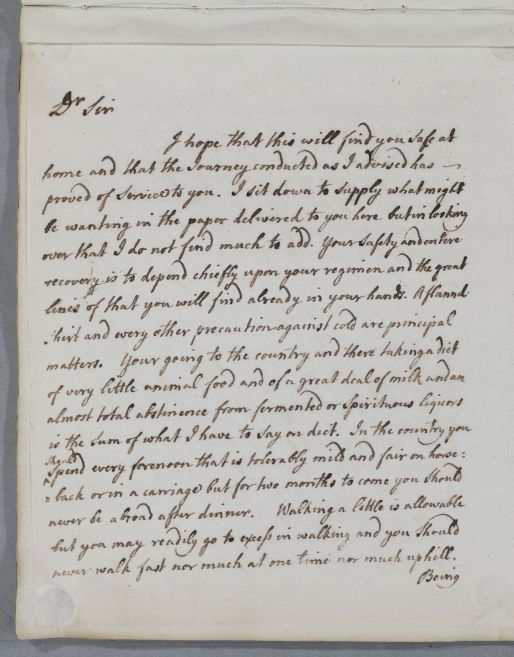 Dr Sir
I hope that this will find you safe at
home and that the Journey conducted as I advised has —
proved of Service to you. I sit down to supply what might
be wanting in the paper delivered to you here but in looking
over that I do not find much to add. Your Safety and entire
recovery is to depend chiefly upon your regimen and the great
lines of that you will find already in your hands. A flannel
Shirt and every other precaution against cold are principal
matters. Your going to the country and there taking a diet
of very little animal food and of a great deal of milk and an
almost total abstinence from fermented or Spirituous liquors
is the Sum of what I have to say on diet. In the country you
should
Spend every forenoon that is tolerably mild and fair on horse=
=back or in a carriage but for two months to come you Should
never be abroad after dinner. Walking a little is allowable
but you may readily go to excess in walking and you Should
never walk fast nor much at one time nor much uphill.
Being